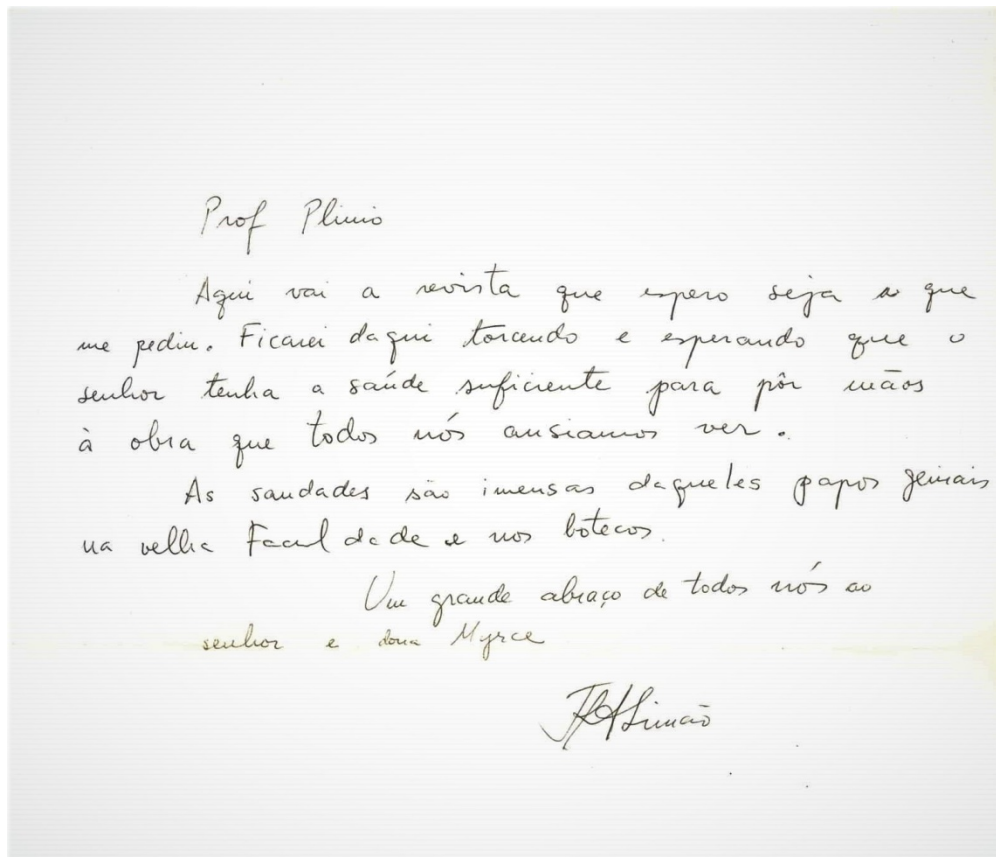 Prof Plinio
Aqui vai a revista que espero seja a que
me pediu. Ficarei daqui torcendo e esperando que o
senhor tenha a saúde suficiente para pôr mãos
à obra que todos nós ansiamos ver.
As saudades são imensas daqueles papos geniais
na velha Faculdade e nos botecos.
Um grande abraço de todos nós ao
senhor e dona Myrce
Simão